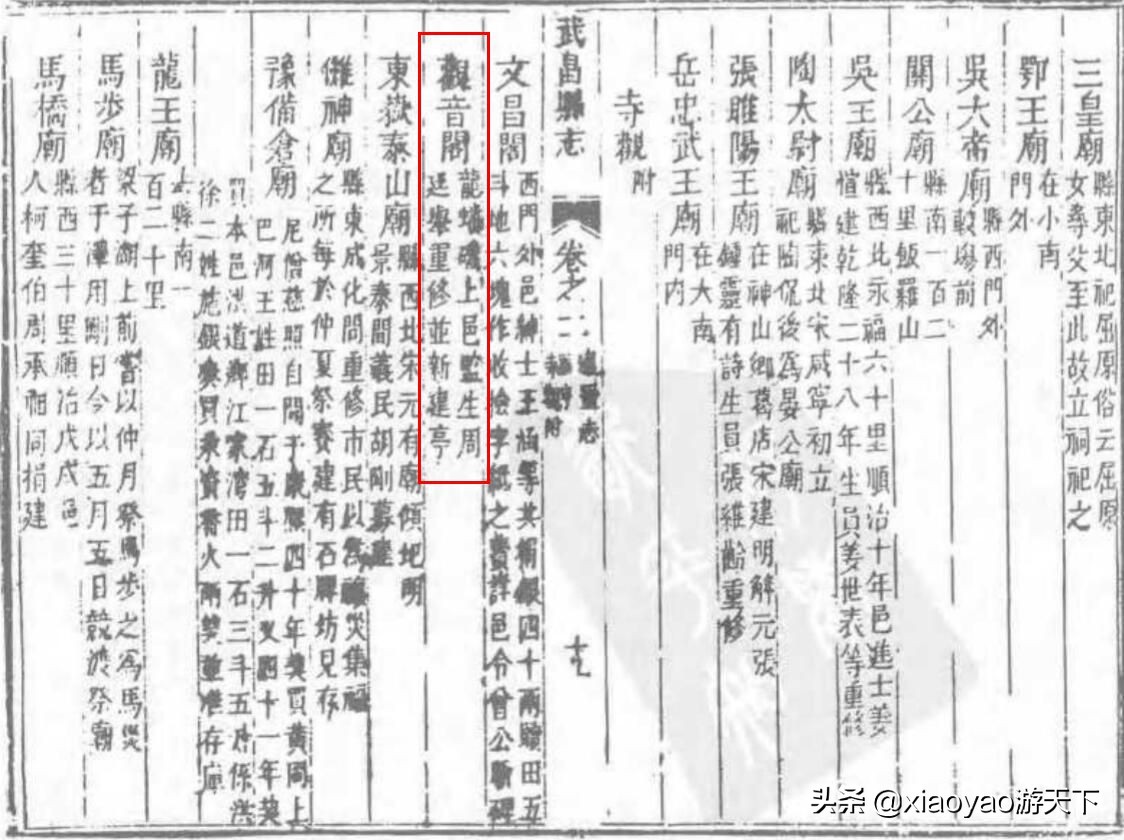 三皇廟縣東北祀屈原俗云屈原
女尋父至此故立祠祀之
鄂王廟在小南
門外
吳大帝廟縣西門外
較場前
關公廟縣南一百二
十里飯羅山
吳王廟縣西北永福六十里順治十年邑進士姜
愷建乾隆二十八年生員姜世表等重修
陶太尉廟縣東北宋咸寧初立
祀陶侃後爲晏公廟
張睢陽王廟在神山鄉葛店宋建明解元張
鍾靈有詩生員張維齡重修
岳忠武王廟在大南
門内
寺觀附
武昌縣志
卷之二
十九
文昌閣西門外邑紳士王涵等共捐銀四十兩贖田五
斗地六塊作收拾字紙之費詳邑令曾公
觀音閣龍蟠磯上邑監生周
廷舉重修並新建亭
東嶽泰山廟縣西北宋元有廟傾圮明
景泰間義民胡剛募建
儺神廟縣東成化間重修市民以禳災集福
之所每於仲夏祭賽建有石牌坊見存
豫備倉廟尼僧慈照自開于康熙四十年契買黄岡上
巴河王姓田一石五斗二升又四十一年契
買本邑洪道鄉江家灣田一石三斗五升係洪
徐二姓施銀
龍王廟縣南一
百二十里
馬步廟梁子湖上前嘗以仲月祭馬步之爲馬災
者于澤用剛日今以五月五日競渡祭廟
馬橋廟縣西三十里順治戊戌邑
人柯奎伯周承詔同捐建
头条 @xiaoyao游天下